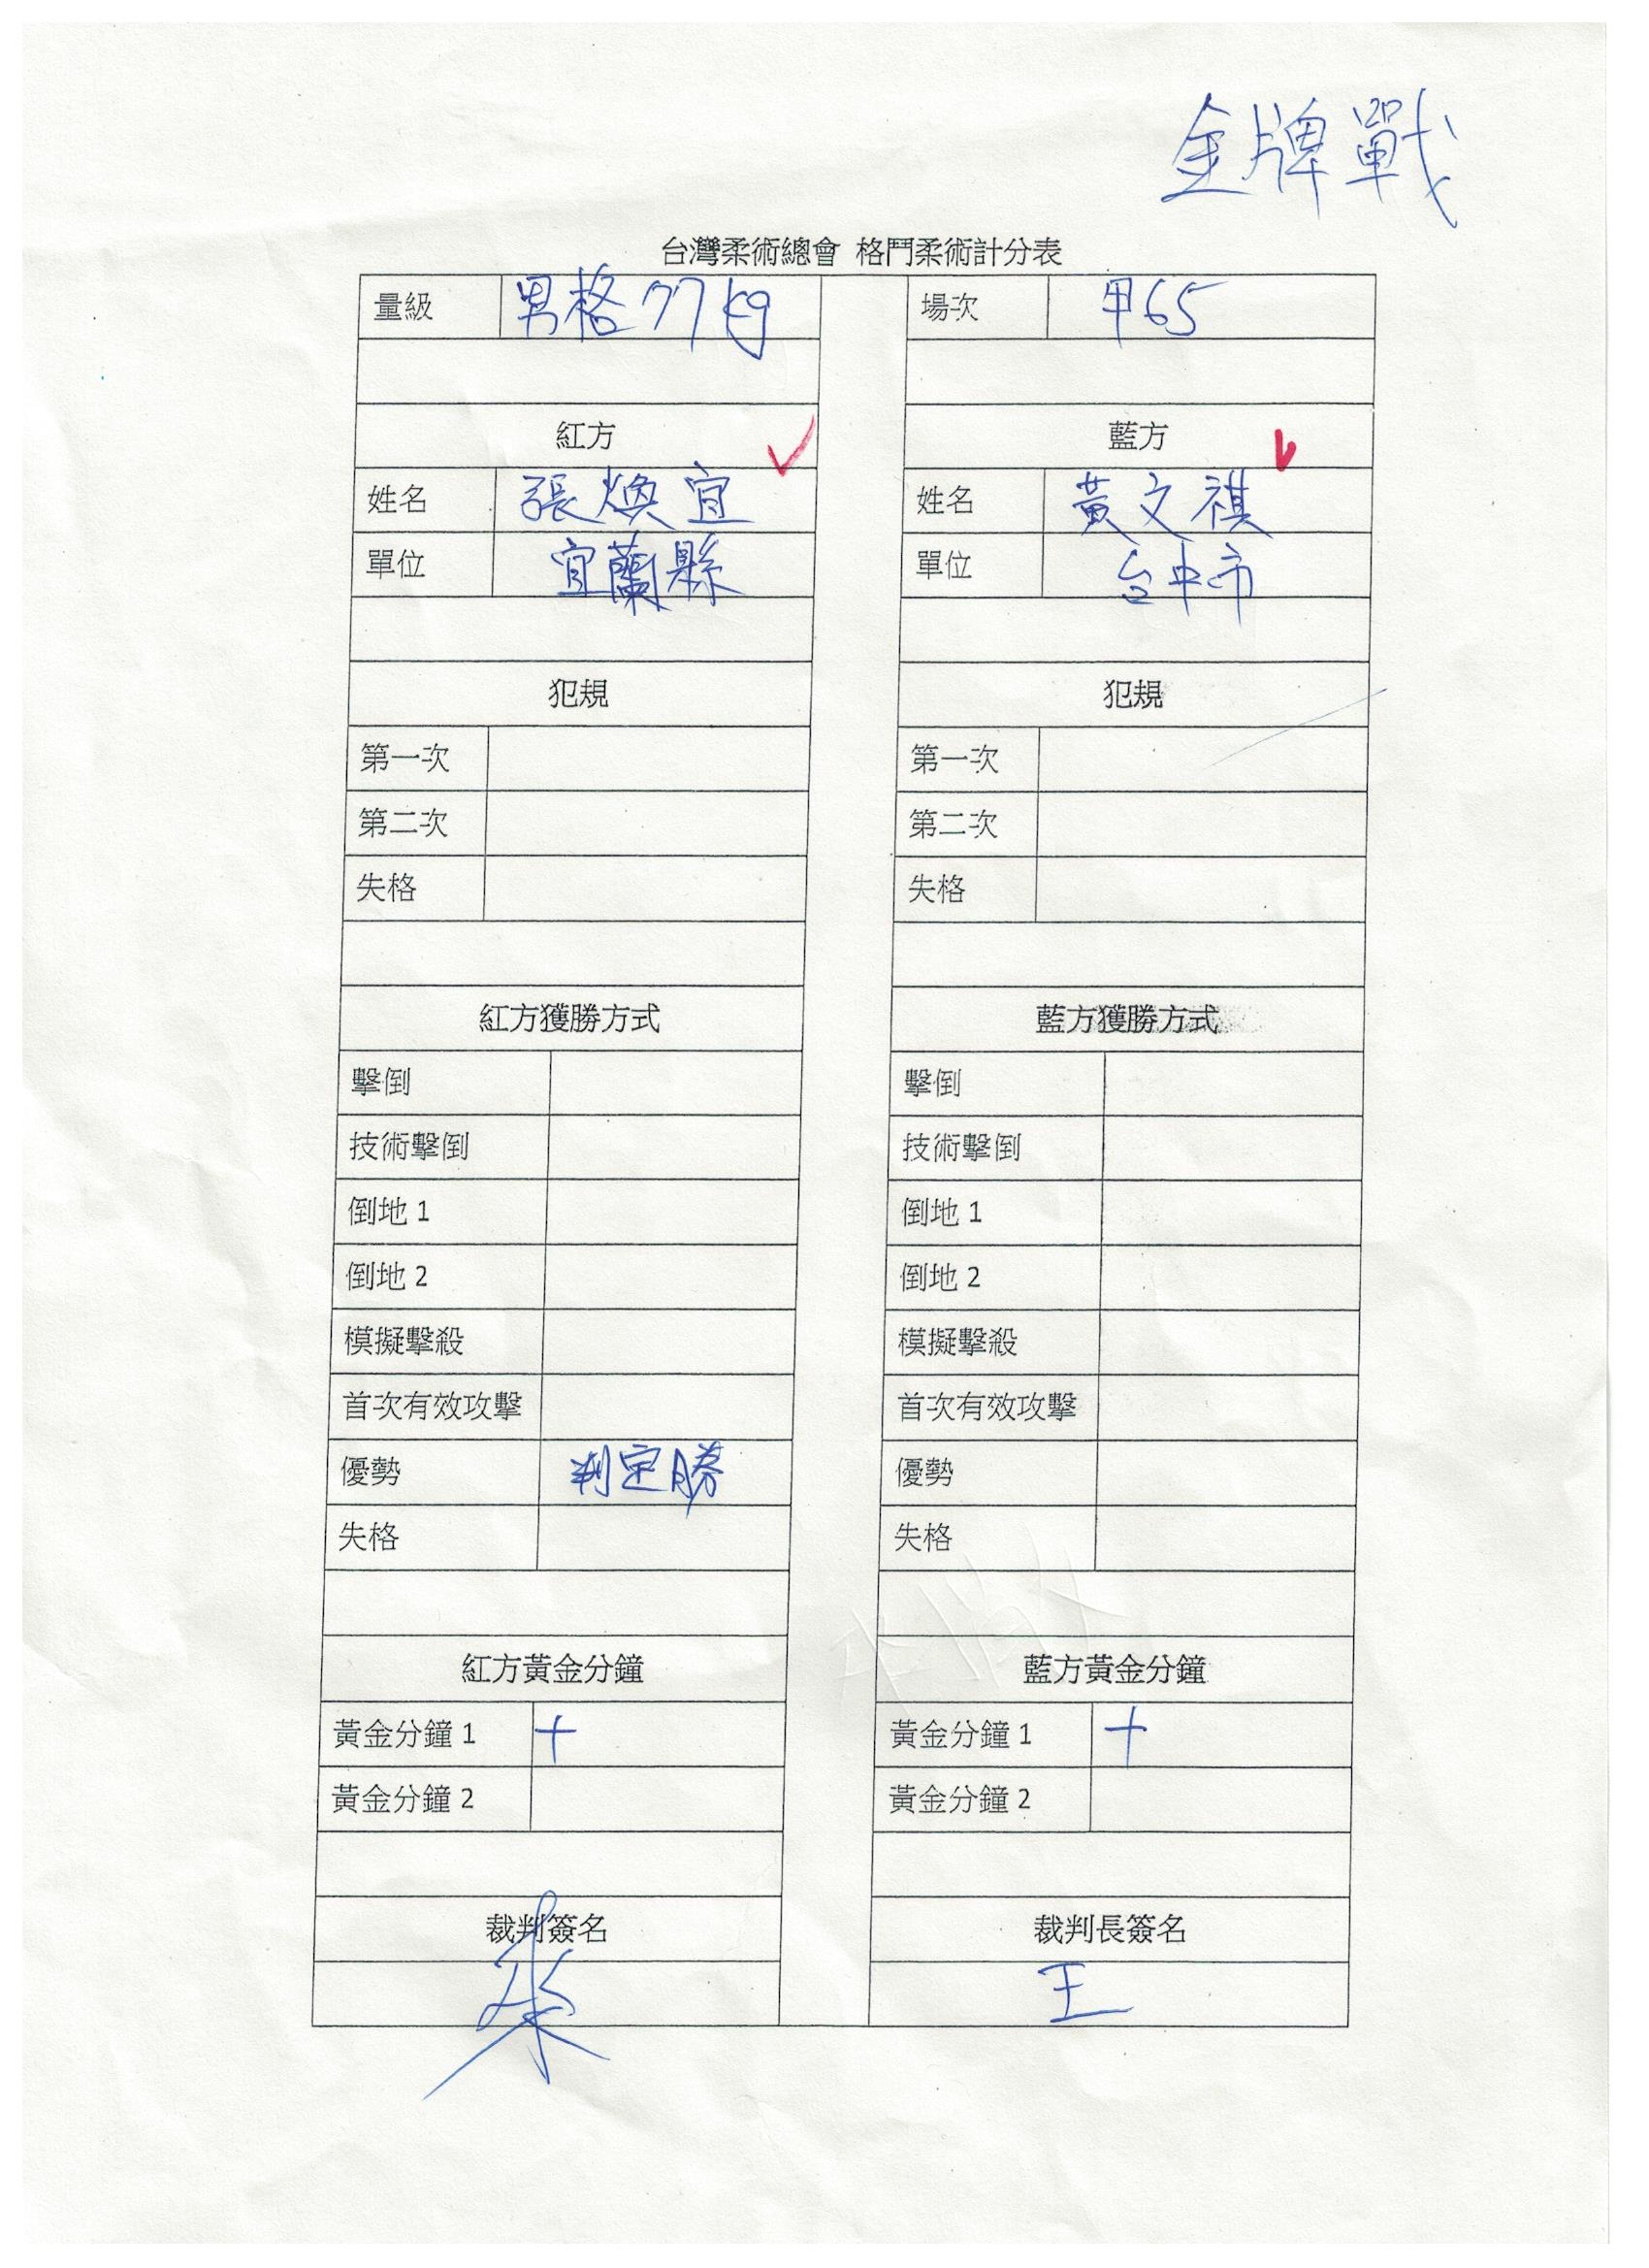 金牌戰
台灣柔術總會 格鬥柔術計分表
量級 男格77kg 場次 甲65
紅方 藍方
姓名 張煥宜 姓名 黃文祺
單位 宜蘭縣 單位 台中市
犯規 犯規
第一次 第一次
第二次 第二次
失格 失格
紅方獲勝方式 藍方獲勝方式
擊倒 擊倒
技術擊倒 技術擊倒
倒地 1 倒地 1
倒地 2 倒地 2
模擬擊殺 模擬擊殺
首次有效攻擊 首次有效攻擊
優勢 判定勝 優勢
失格 失格
紅方黃金分鐘 藍方黃金分鐘
黃金分鐘 1 + 黃金分鐘 1 +
黃金分鐘 2 黃金分鐘 2
裁判簽名 裁判長簽名
王